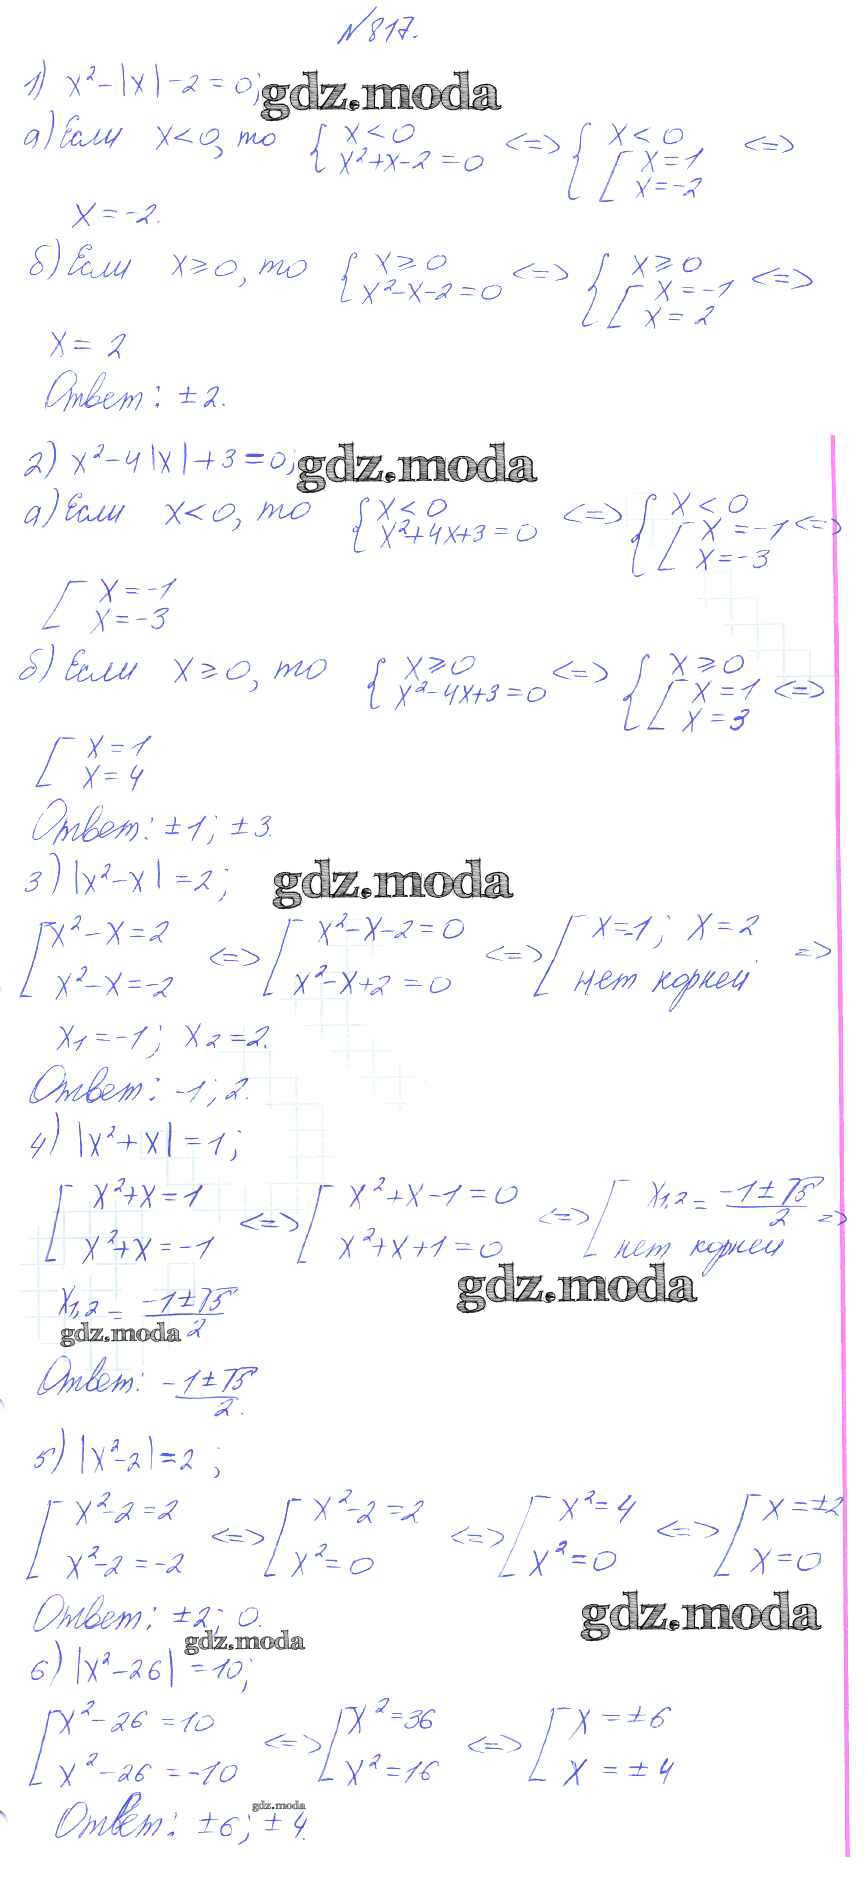 №817.
1) x²-|x|-2=0; gdz.moda
а) Если x<0, то { x<0 x²+x-2=0 <=> { x<0 [ x=1 x=-2 <=>
x=-2.
б) Если x⩾0, то { x⩾0 x²-x-2=0 <=> { x⩾0 [ x=-1 x=2 <=>
x=2
Ответ: ±2.
2) x²-4|x|+3=0; gdz.moda
а) Если x<0, то { x<0 x²+4x+3=0 <=> { x<0 [ x=-1 x=-3 <=>
[ x=-1
x=-3
б) Если x⩾0, то { x⩾0 x²-4x+3=0 <=> { x⩾0 [ x=1 x=3 <=>
[ x=1
x=4
Ответ: ±1; ±3.
3) |x²-x|=2; gdz.moda
[ x²-x=2 <=> [ x²-x-2=0 <=> [ x=-1; x=2 =>
x²-x=-2 x²-x+2=0 нет корней
x₁=-1; x₂=2.
Ответ: -1; 2.
4) |x²+x|=1;
[ x²+x=1 <=> [ x²+x-1=0 <=> [ x₁,₂ = (-1±√5)/2 =>
x²+x=-1 x²+x+1=0 нет корней
gdz.moda
x₁,₂ = (-1±√5)/2
gdz.moda
Ответ: (-1±√5)/2.
5) |x²-2|=2;
[ x²-2=2 <=> [ x²-2=2 <=> [ x²=4 <=> [ x=±2
x²-2=-2 x²=0 x²=0 x=0
Ответ: ±2; 0. gdz.moda
gdz.moda
6) |x²-26|=10;
[ x²-26=10 <=> [ x²=36 <=> [ x=±6
x²-26=-10 x²=16 x=±4
gdz.moda
Ответ: ±6; ±4.